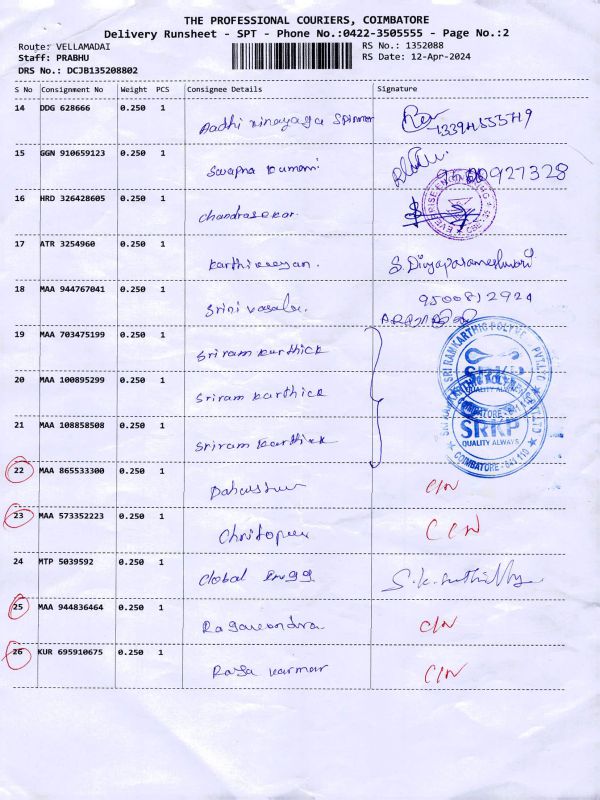 THE PROFESSIONAL COURIERS, COIMBATORE
Delivery Runsheet - SPT - Phone No.:0422-3505555 - Page No.:2
Route: VELLAMADAI RS No.: 1352088
Staff: PRABHU RS Date: 12-Apr-2024
DRS No.: DCJB135208802
S No Consignment No Weight PCS Consignee Details Signature
14 DDG 628666 0.250 1 Aadhi vinayaga Spinner
15 GGN 910659123 0.250 1 Swapna kumari 927328
16 HRD 326428605 0.250 1 Chandrasekar.
17 ATR 3254960 0.250 1 Karthikeyan. S. Divyaparameshwari
18 MAA 944767041 0.250 1 Srini vasalu. 9500812924
19 MAA 703475199 0.250 1 Sriram karthick
20 MAA 100895299 0.250 1 Sriram karthick
21 MAA 108858508 0.250 1 Sriram karthick
SRKP
QUALITY ALWAYS
COIMBATORE - 641 110
22 MAA 865533300 0.250 1 C/N
23 MAA 573352223 0.250 1 C/N
24 MTP 5039592 0.250 1 Global Engg
25 MAA 944836464 0.250 1 Ragavendra. C/N
26 KUR 695910675 0.250 1 Raja kumar C/N